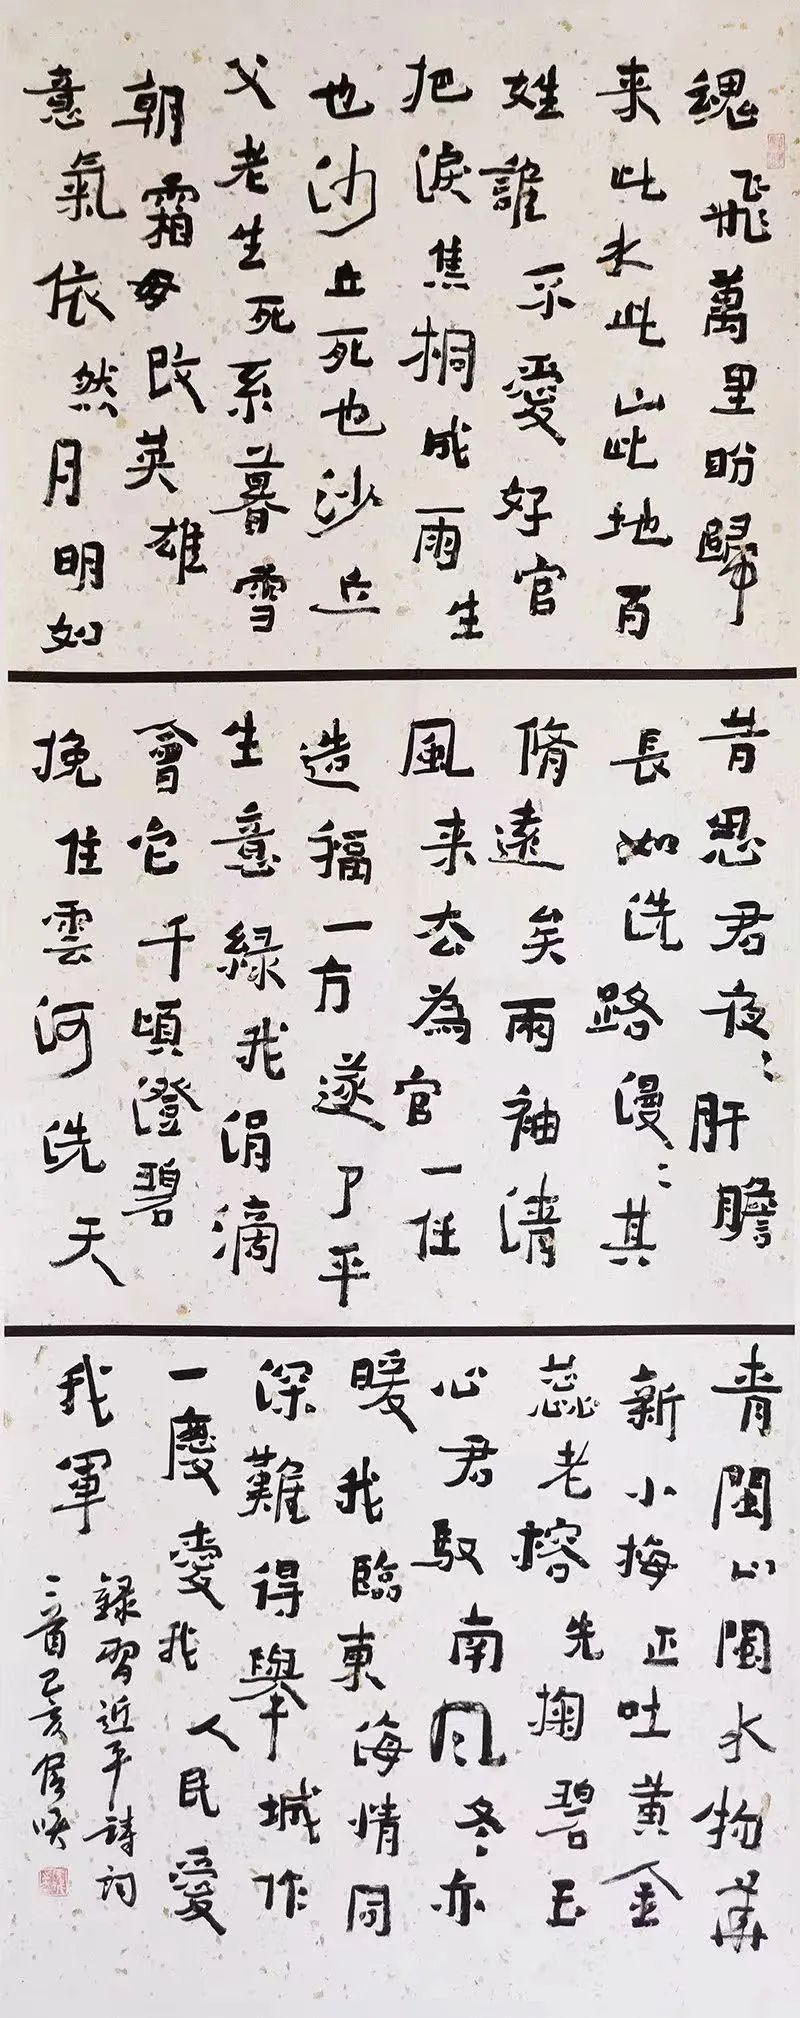 魂飛萬里盼歸
来此水此山此地百
姓誰不愛好官
把淚焦桐成雨生
也沙丘死也沙丘
父老生死系暮雪
朝霜毋改英雄
意氣依然月明如
昔思君夜〻肝膽
長如洗路漫〻其
脩遠矣兩袖清
風来去為官一任
造福一方遂了平
生意緑我涓滴
會它千頃澄碧
挽住雲河洗天
青閩山閩水物華
新小梅正吐黄金
蕊老榕先掬碧玉
心君馭南风冬亦
暖我臨東海情同
深難得舉城作
一慶愛我人民愛
我軍
録習近平詩詞
三首己亥